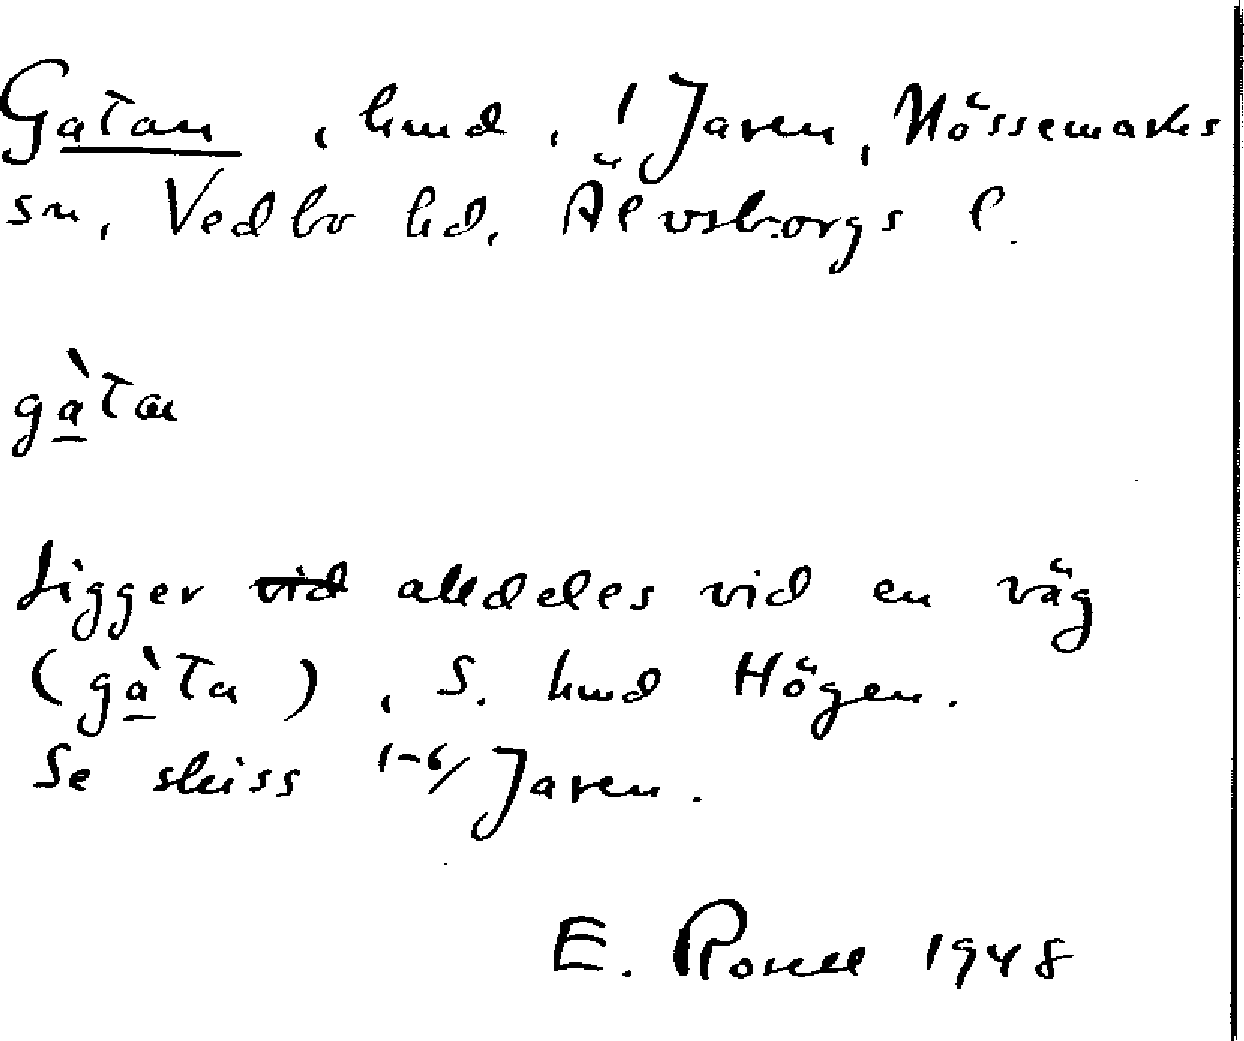 Gatan, hmd, 1 Javen, Nössemarks
sn, Vedbo hd, Älvsborgs l.
gàta
Ligger vid alldeles vid en väg
(gàta), S. hmd Högen.
Se skiss 1-6/Javen.
E. 1948